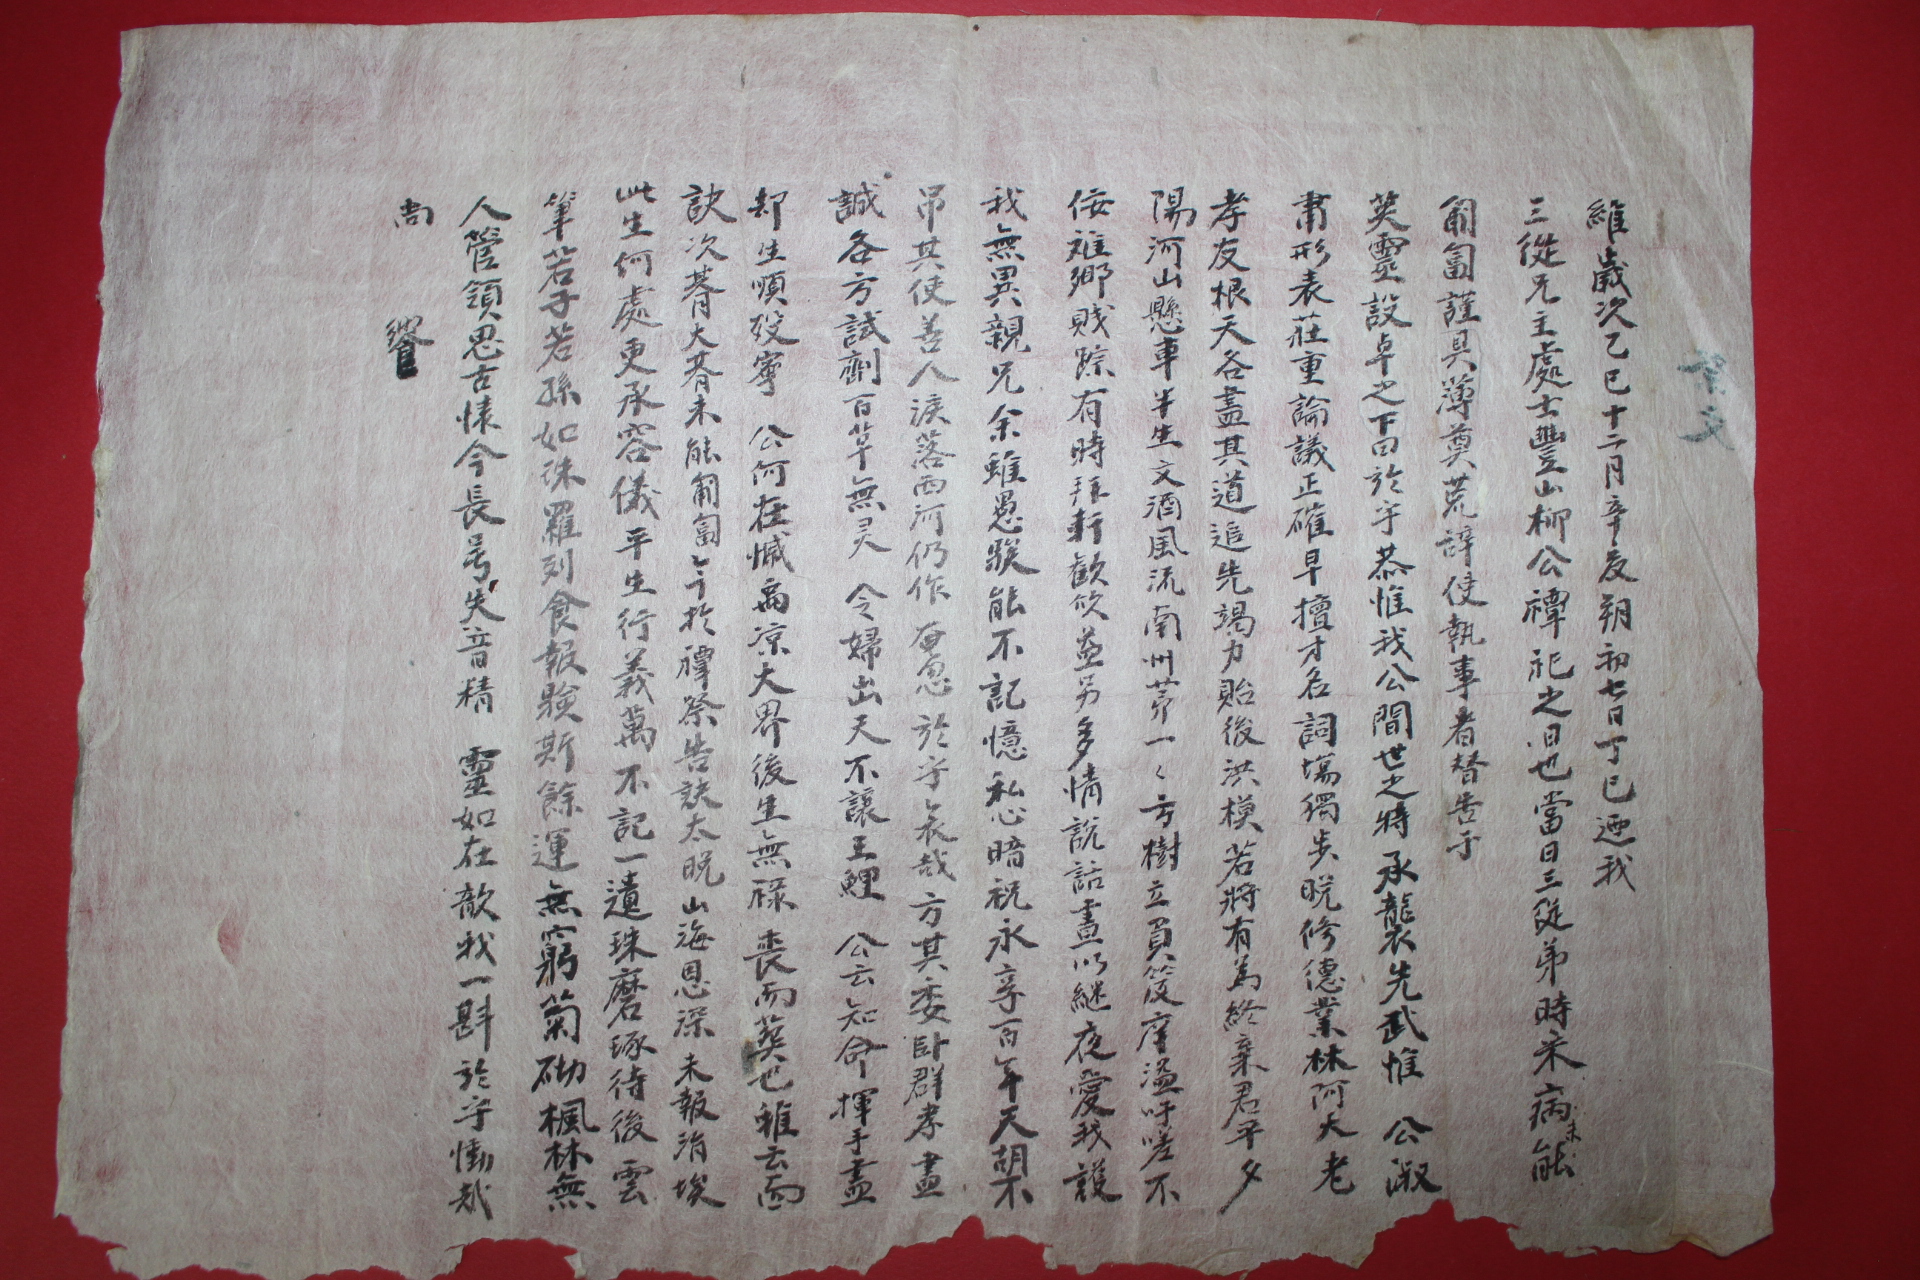 祭文
維歲次乙巳十二月辛亥朔初七日丁巳迺我
三從兄主處士豐山柳公禫祀之日也當日三從弟時釆病未能
匍匐謹具薄奠荒辭使執事者替告于
英靈設卓之下曰於乎恭惟我公間世之將承襲先武惟 公淑
肅形表莊重論議正確早擅才名詞場獨步晩修德業林阿大老
孝友根天各盡其道追先竭力貽後洪模若將有爲終棄君平夕
陽河山懸車半生文酒風流南州第一々方樹立負笈庠溢吁嗟不
侫雖鄕賤踪有時拜軒歡欣益另多情說話晝以繼夜愛我護
我無異親兄余雖愚騃能不記憶私心暗祝永享百年天胡不
吊其使善人淚落西河仍作奄忽於乎哀哉方其委臥群孝盡
誠各方試劑百草無灵 令婦出天不讓王鯉 公云知命揮手盡
却生順歿寧 公何在憾而凉大界後生無祿喪而葬也雖云而
訣次朞大朞未能匍匐今於禫祭告訣太晩山海恩深未報涓埃
此生何處更承容儀平生行義萬不記一遺珠磨琢待後雲
筆若子若孫如珠羅列食報驗斯餘運無窮菊砌楓林無
人管領思古懷今長号失音精 靈如在歆我一斟於乎慟哉
尙 饗